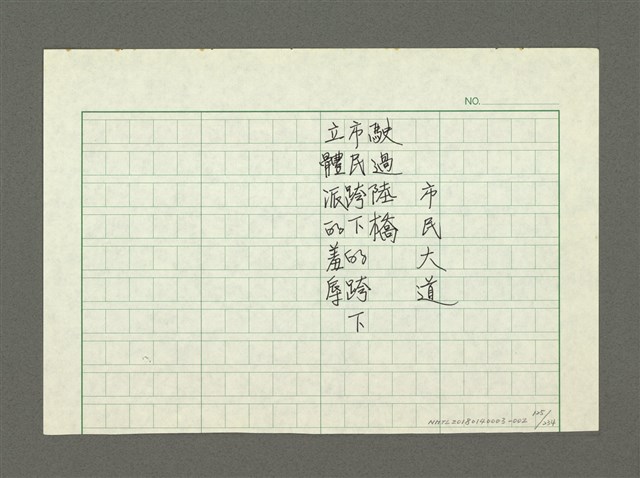 NO.
市民大道
駛過陸橋
市民跨下的跨下
立體派的羞辱
NMTL20180140003-002
125/234